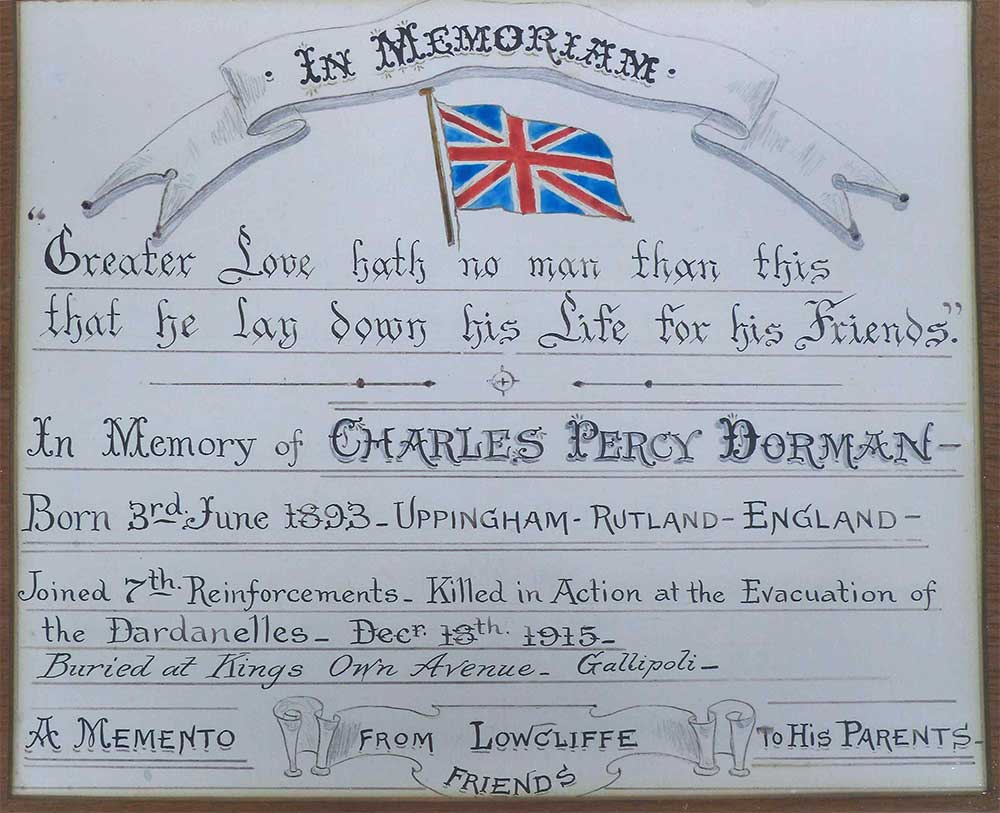 · IN MEMORIAM ·
“Greater Love hath no man than this
that he lay down his Life for his Friends.”
In Memory of CHARLES PERCY DORMAN–
Born 3rd. June 1893 – UPPINGHAM – RUTLAND – ENGLAND –
Joined 7th. Reinforcements – Killed in Action at the Evacuation of
the Dardanelles – Decr. 18th. 1915 –
Buried at Kings Own Avenue – Gallipoli –
A MEMENTO FROM LOWCLIFFE TO HIS PARENTS –
FRIENDS